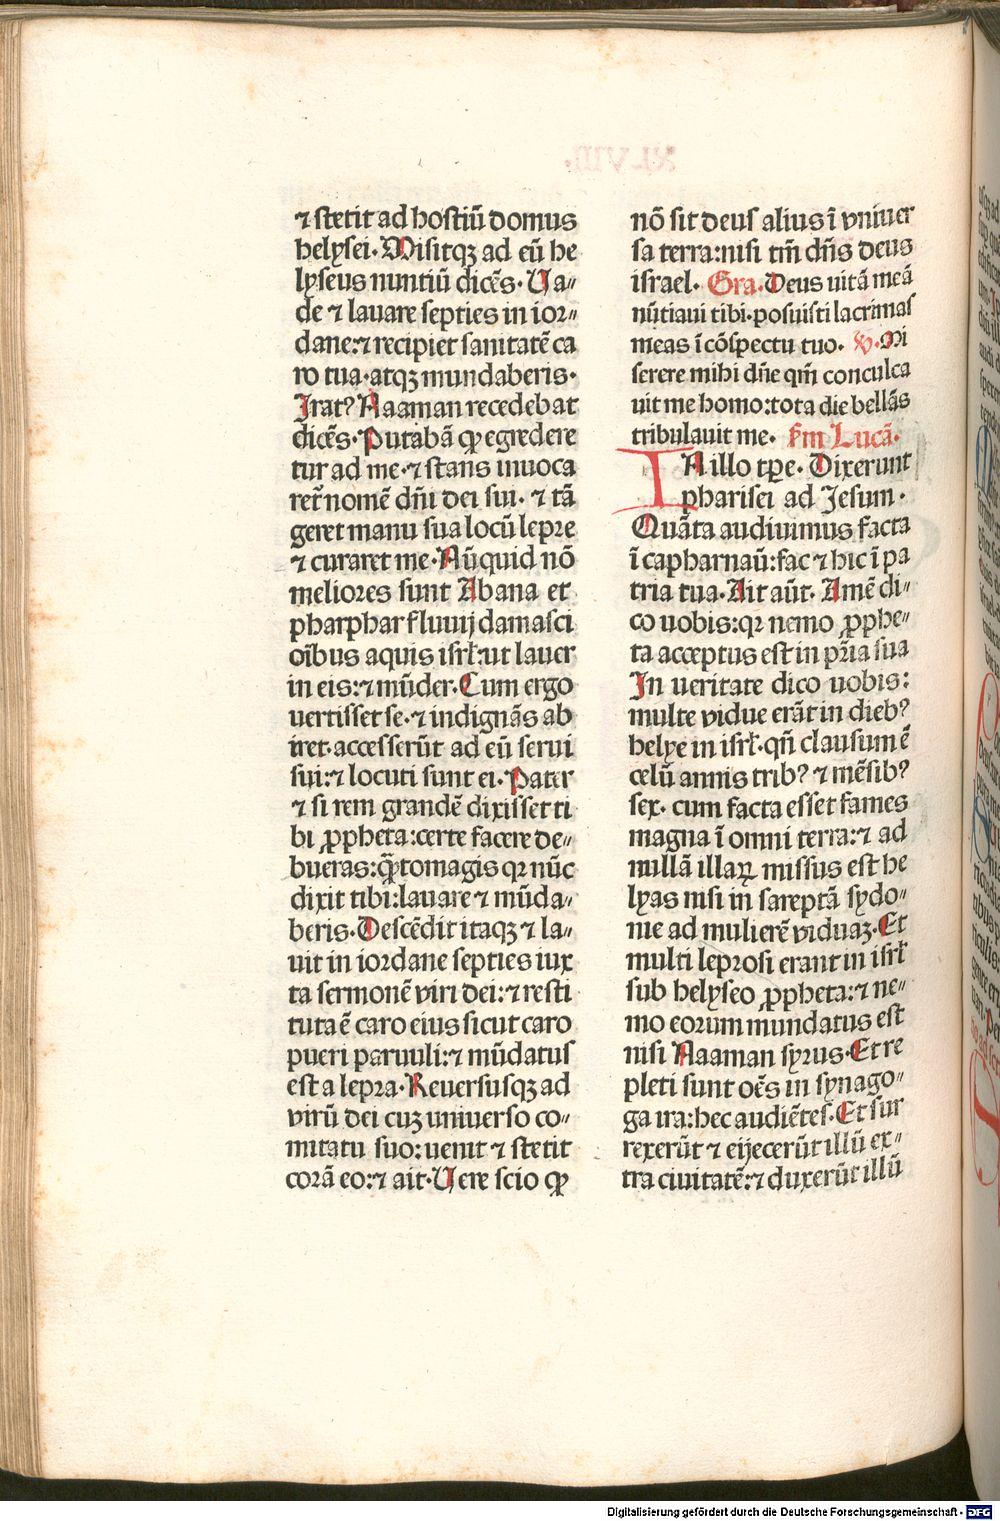 ⁊ stetit ad hostiū domus
helysei. Misitqꝫ ad eū he
lyseus nuntiū dicēs. Ua⸗
de ⁊ lauare septies in ior⸗
dane:⁊ recipiet sanitatē ca
ro tua. atqꝫ mundaberis.
Iratꝰ Naaman recedebat
dicēs. Putabā ꝙ egredere
tur ad me. ⁊ stans inuoca
ret nomē dn̄i dei sui. ⁊ tā
geret manu sua locū lepre
⁊ curaret me. Nūquid nō
meliores sunt Abana et
pharphar fluuij damasci
oībus aquis isrł:ut lauer
in eis:⁊ mūder. Cum ergo
vertisset se. ⁊ indignās ab
iret. accesserūt ad eū serui
sui:⁊ locuti sunt ei. Pater
⁊ si rem grandē dixisset ti
bi ꝓpheta:certe facere de⸗
bueras:q̄ꝫtomagis qꝛ nūc
dixit tibi:lauare ⁊ mūda⸗
beris. Descēdit itaqꝫ ⁊ la⸗
uit in iordane septies iux
ta sermonē viri dei:⁊ resti
tuta ē caro eius sicut caro
pueri paruuli:⁊ mūdatus
est a lepra. Reuersusqꝫ ad
virū dei cuꝫ uniuerso co⸗
mitatu suo:uenit ⁊ stetit
corā eo:⁊ ait. Uere scio ꝙ
nō sit deus alius ī vniuer
sa terra:nisi tm̄ dn̄s deus
israel. Gra. Deus uitā meā
nūtiaui tibi. posuisti lacrimas
meas ī cōspectu tuo. v̄. Mi
serere mihi dn̄e qm̄ conculca
uit me homo:tota die bellās
tribulauit me. s̄m Lucā.
IN illo tꝑe. Dixerunt
pharisei ad Jesum.
Quāta audiuimus facta
ī capharnaū:fac ⁊ hic ī pa
tria tua. Ait aūt. Amē di⸗
co uobis:qꝛ nemo ꝓphe⸗
ta acceptus est in pr̄ia sua
In ueritate dico uobis:
multe vidue erāt in diebꝰ
helye in isrł. qn̄ clausum ē
celū annis tribꝰ ⁊ mēsibꝰ
sex. cum facta esset fames
magna ī omni terra:⁊ ad
nullā illaꝝ missus est he
lyas nisi in sareptā sydo⸗
nie ad mulierē viduaꝫ. Et
multi leprosi erant in isrł
sub helyseo ꝓpheta:⁊ ne⸗
mo eorum mundatus est
nisi Naaman syrus. Et re
pleti sunt oēs in synago⸗
ga ira:hec audiētes. Et sur
rexerūt ⁊ eijecerūt illū ex⸗
tra ciuitatē:⁊ duxerūt illū
Digitalisierung gefördert durch die Deutsche Forschungsgemeinschaft - DFG